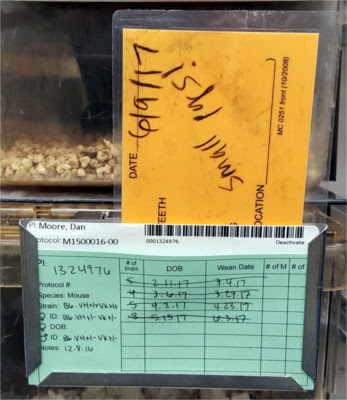 DATE 6/9/17
small pups!
TEETH
OCATION
MC 0251 front (10/2008)
PI: Moore, Dan
otocol: M1500016-00
0001324976
Deactivate
PI:
1324976
Protocol #:
Species: Mouse
Strain: B6.VH+/+VK+/+
♀ ID: B6.VH+/-VK+/-
♀ DOB:
♂ ID: B6.VH+/-VK+/-
Notes: 12.8.16
# of pups DOB Wean Date # of M # of
5 2.11.17 3.4.17
4 3.6.17 3.27.17
5 4.2.17 4.23.17
8 5.13.17 6.3.17